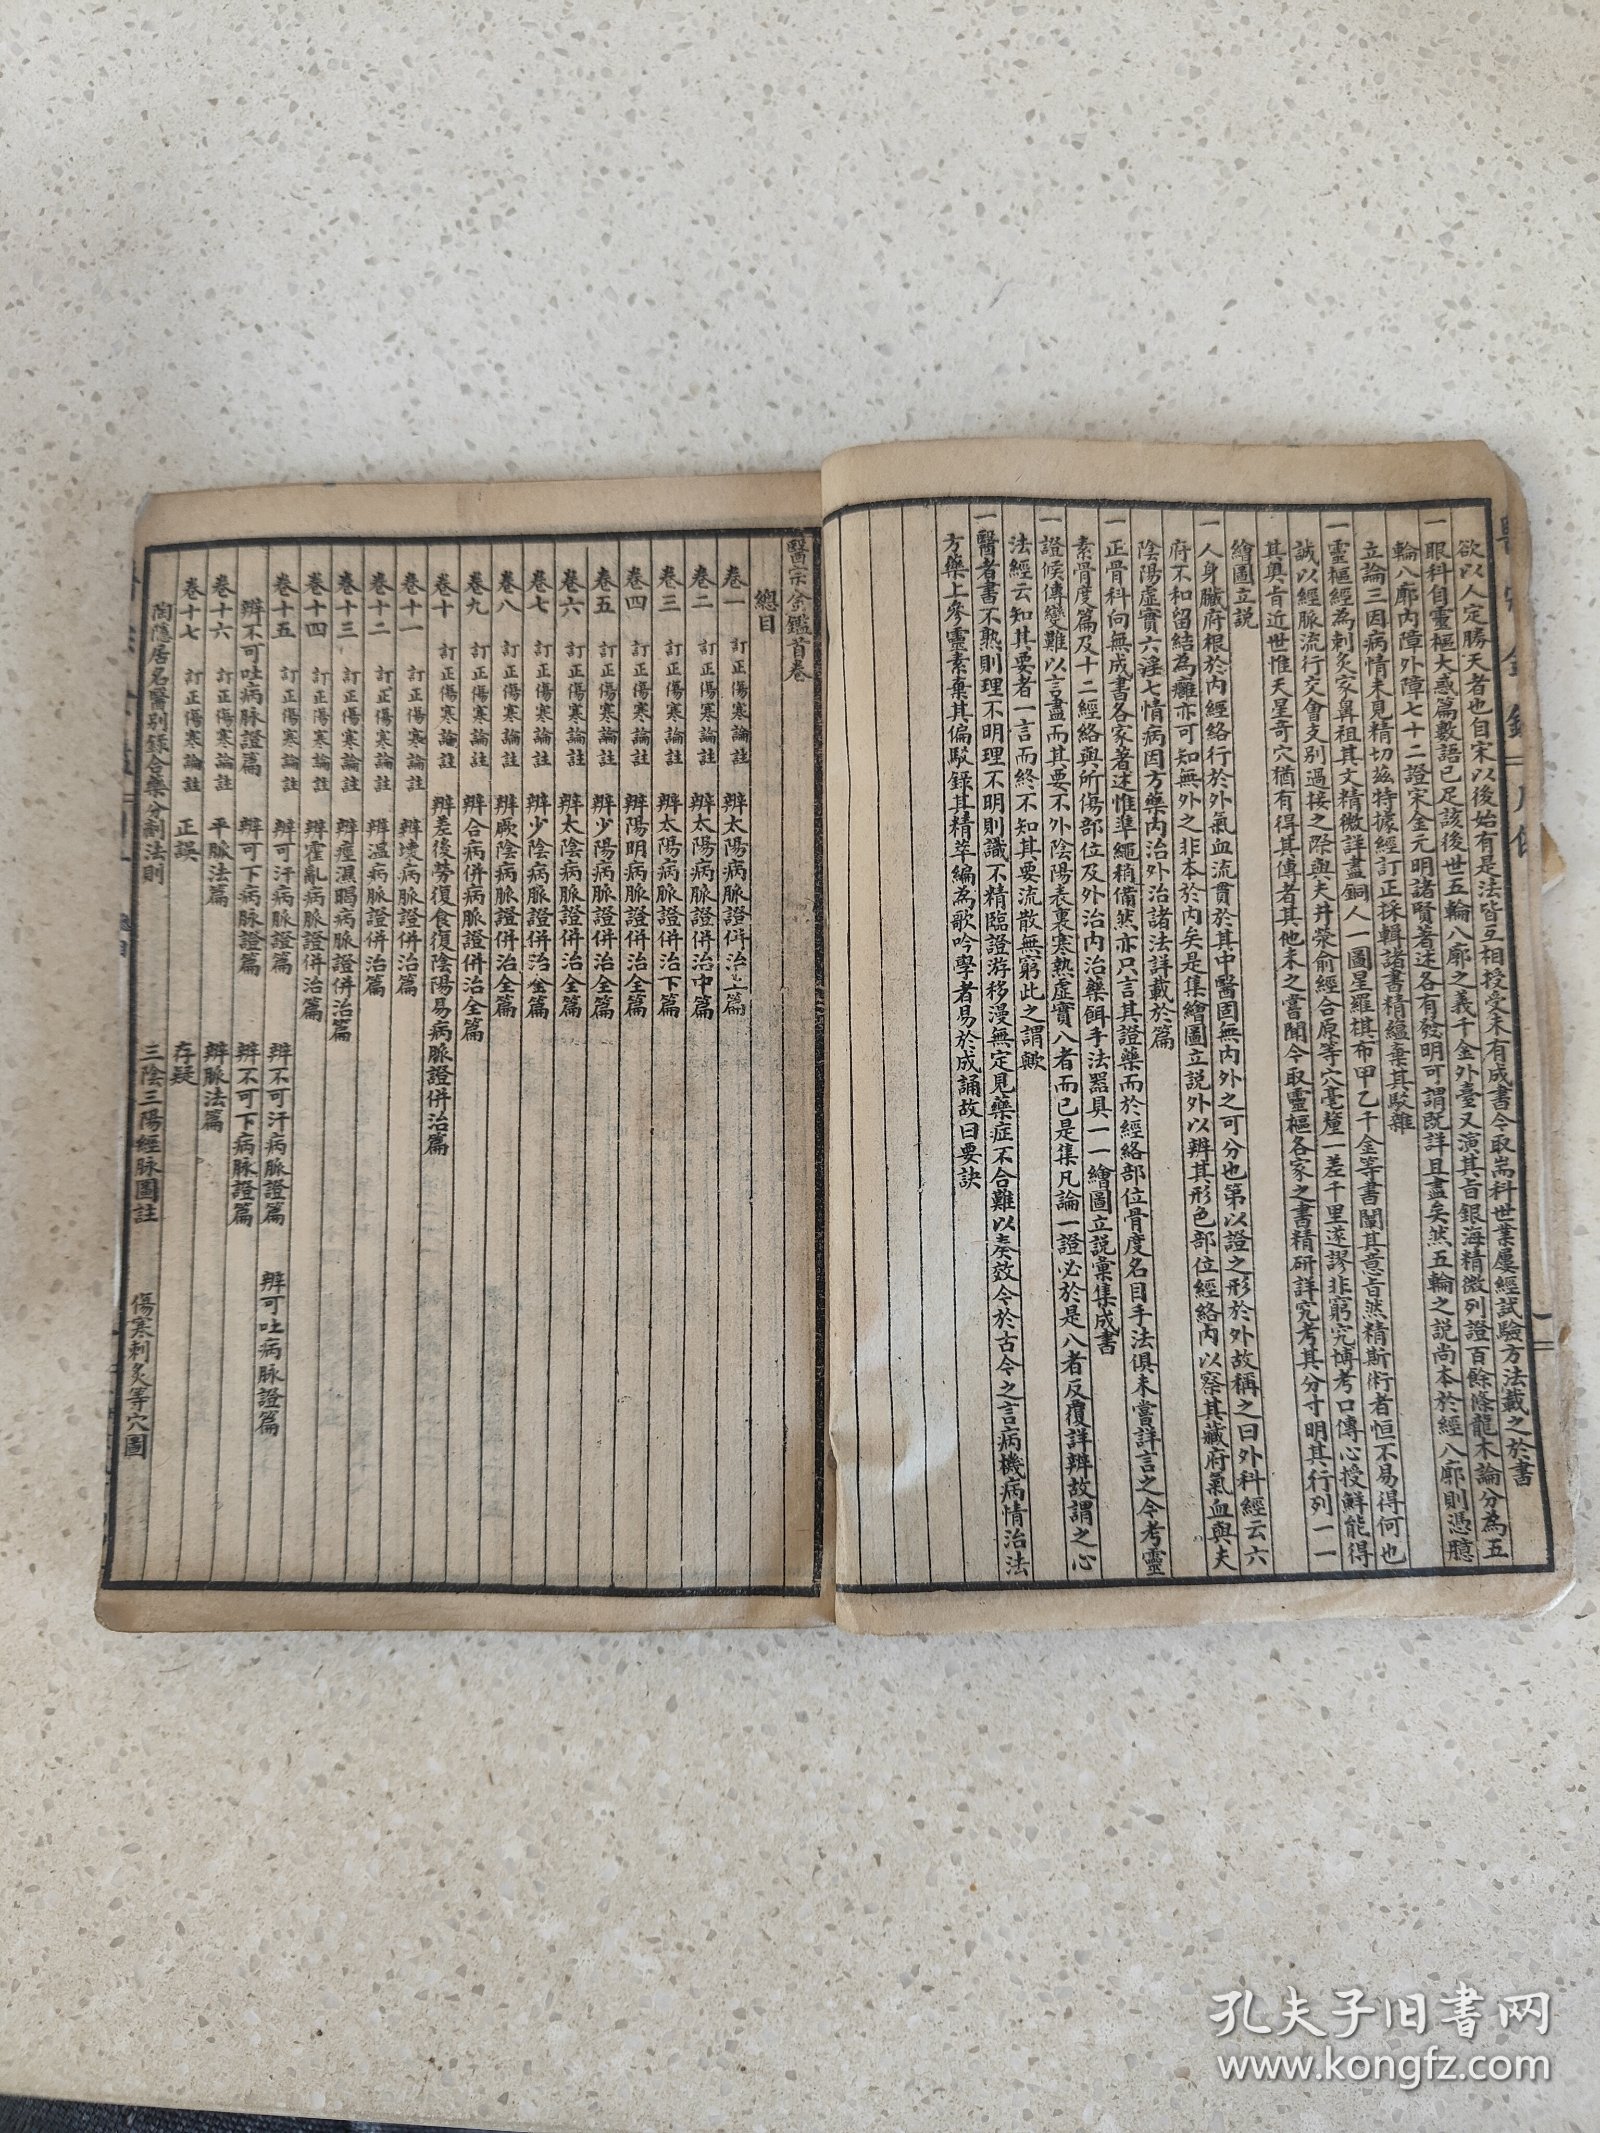 欲以人定勝天者也自宋以後始有是法皆互相授受未有成書今取耑科世業屢經試驗方法載之於書
一眼科自靈樞大惑篇數語已足該後世五輪八廓之義千金外臺又演其旨銀海精微列證百餘條龍木論分為五
輪八廓內障外障七十二證宋金元明諸賢著述各有發明可謂既詳且盡矣然五輪之說尚本於經八廓則憑臆
立論三因病情未見精切茲特據經訂正採輯諸書精蘊棄其駁雜
一靈樞經為刺灸家鼻祖其文精微詳盡銅人一圖星羅棋布甲乙千金等書闡其意旨然精斯術者恒不易得何也
誠以經脈流行交會支別過接之際與夫井滎俞經合原等穴毫釐一差千里遂謬非窮究博考口傳心授鮮能得
其奧旨近世惟天星奇穴猶有得其傳者其他未之嘗聞今取靈樞各家之書精研詳究考其分寸明其行列一一
繪圖立說
一人身臟府根於內經絡行於外氣血流貫於其中醫固無內外之可分也第以證之形於外故稱之曰外科經云六
府不和留結為癰亦可知無外之非本於內矣是集繪圖立說外以辨其形色部位經絡內以察其臟府氣血與夫
陰陽虛實六淫七情病因方藥內治外治諸法詳載於篇
一正骨科向無成書各家著述惟準繩稍備然亦只言其證藥而於經絡部位骨度名目手法俱未嘗詳言之今考靈
素骨度篇及十二經絡與所傷部位及外治內治藥餌手法器具一一繪圖立說彙集成書
一證候傳變難以言盡而其要不外陰陽表裏寒熱虛實八者而已是集凡論一證必於是八者反覆詳辨故謂之心
法經云知其要者一言而終不知其要流散無窮此之謂歟
一醫者書不熟則理不明理不明則識不精臨證游移漫無定見藥症不合難以奏效今於古今之言病機病情治法
方藥上參靈素棄其偏駁錄其精萃編為歌吟學者易於成誦故曰要訣
醫宗金鑑首卷
總目
卷一 訂正傷寒論註 辨太陽病脈證併治上篇
卷二 訂正傷寒論註 辨太陽病脈證併治中篇
卷三 訂正傷寒論註 辨太陽病脈證併治下篇
卷四 訂正傷寒論註 辨陽明病脈證併治全篇
卷五 訂正傷寒論註 辨少陽病脈證併治全篇
卷六 訂正傷寒論註 辨太陰病脈證併治全篇
卷七 訂正傷寒論註 辨少陰病脈證併治全篇
卷八 訂正傷寒論註 辨厥陰病脈證併治全篇
卷九 訂正傷寒論註 辨合病併病脈證併治全篇
卷十 訂正傷寒論註 辨差後勞復食復陰陽易病脈證併治篇
卷十一 訂正傷寒論註 辨壞病脈證併治篇
卷十二 訂正傷寒論註 辨溫病脈證併治篇
卷十三 訂正傷寒論註 辨痙濕暍病脈證併治篇
卷十四 訂正傷寒論註 辨霍亂病脈證併治篇
卷十五 訂正傷寒論註 辨可汗病脈證篇 辨不可汗病脈證篇 辨可吐病脈證篇
辨不可吐病脈證篇 辨可下病脈證篇 辨不可下病脈證篇
卷十六 訂正傷寒論註 平脈法篇 辨脈法篇
卷十七 訂正傷寒論註 正誤 存疑
陶隱居名醫別錄合藥分劑法則 三陰三陽經脉圖註 傷寒刺灸等穴圖
孔夫子旧书网
www.kongfz.com